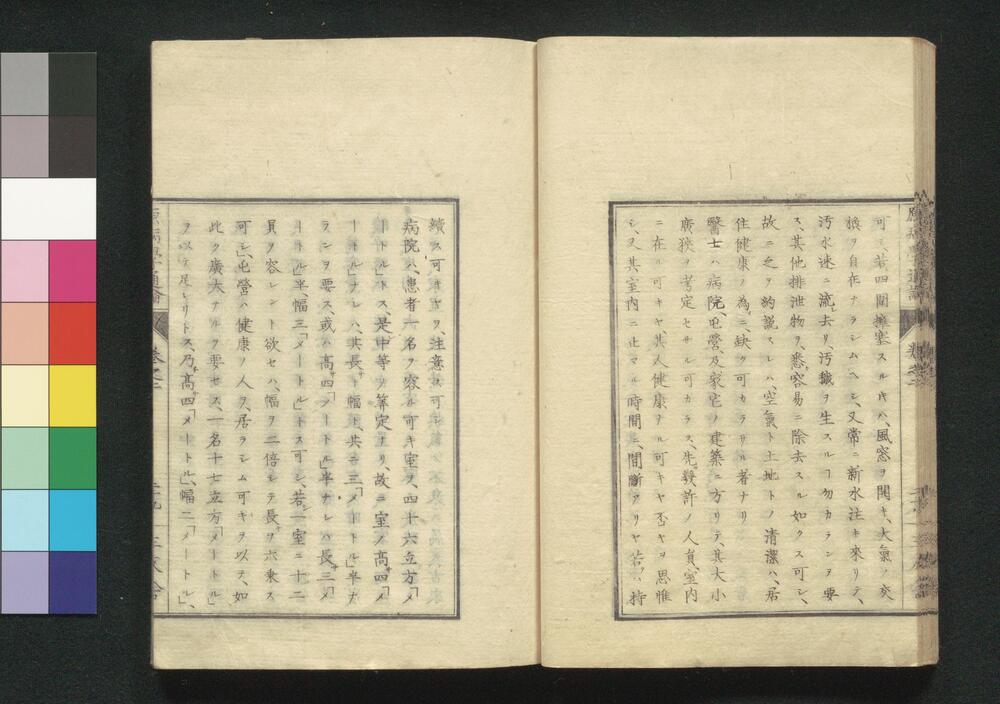 可シ、若四圍擁塞スル片ハ、風窓ヲ開キ、大氣ノ交
換ヲ自在ナラシムヘシ、又常ニ新水注キ來リテ、
汚水迷ニ流去リ、汚穢ヲ生スルヿ勿カランヲ要
ス、其他排泄物ヲ、悉容易ニ除去スル如クス可シ、
故ニ之ヲ約説スレハ、空氣ト土地トノ清潔ハ、居
住健康ノ為ニ、缺ク可カラサル者ナリ
醫士ハ病院、屯營、及家宅ノ建築ニ方リテ、其大小
廣狹ヲ考定セサル可カラス、先幾許ノ人員、室内
ニ在ル可キヤ、其人健康ナル可キヤ否ヤヲ思惟
シ、又其室内ニ止マル時間ニ、間斷アリヤ、若クハ持
續ス可キヤヲ、注意ス可シ
病院ハ、患者一名ヲ容ル可キ室ヲ、四十六立方「メ
ートル」トス、是中等ノ算定ナリ、故ニ室ノ高四「メ
ートル」ナレハ、其長ト幅ト、共ニ三「メートル」半ナ
ランヲ要ス、或ハ高四「メートル」半ナレハ長三「メ
ートル」半幅三「メートル」トス可シ、若一室ニ十二
員ヲ容レント欲セハ、幅ヲ二倍シテ長ヲ六乘ス
可シ、屯營ハ健康ノ人ヲ、居ラシム可キヲ以テ、如
此ク廣大ナルヲ要セス、一名十七立方「メートル」
ヲ以テ足レリトス、乃高四「メートル」、幅二「メートル」、
原病學通論
卷之二